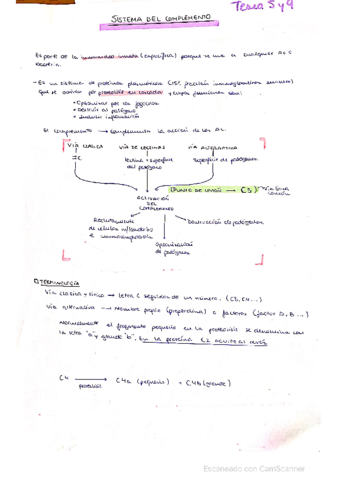 Tema 5 y 9
SISTEMA DEL COMPLEMENTO
Es parte de la inmunidad innata (específica) porque se une a cualquier
- Es un sistema de proteínas plasmáticas
que se activan por proteólisis en cascada y cuyas funciones son:
• Opsonizar por los fagocitos
• Destruir al patógeno
• Inducir inflamación
El complemento → complementa la acción de los Ac.
VÍA CLÁSICA VÍA DE LECTINAS VÍA ALTERNATIVA
IC lectina + superficie Superficie de patógenos
del patógeno
(PUNTO DE UNIÓN → C3) Vía final
común
ACTIVACIÓN
DEL
COMPLEMENTO
Reclutamiento Destrucción de patógenos
de células inflamatorias
e inmunocompetentes
Opsonización
de patógenos
TERMINOLOGÍA
Vía clásica y lítico → letra C seguidas de un número. (C3, C4...)
Vía alternativa → Nombre propio (properdina) o factores (factor D, B...)
Normalmente el fragmento pequeño en la proteólisis se denomina con
la letra "a" y grande "b". En la proteína C2 ocurre al revés
C4 → C4a (pequeño) + C4b (grande)
proteólisis
Escaneado con CamScanner